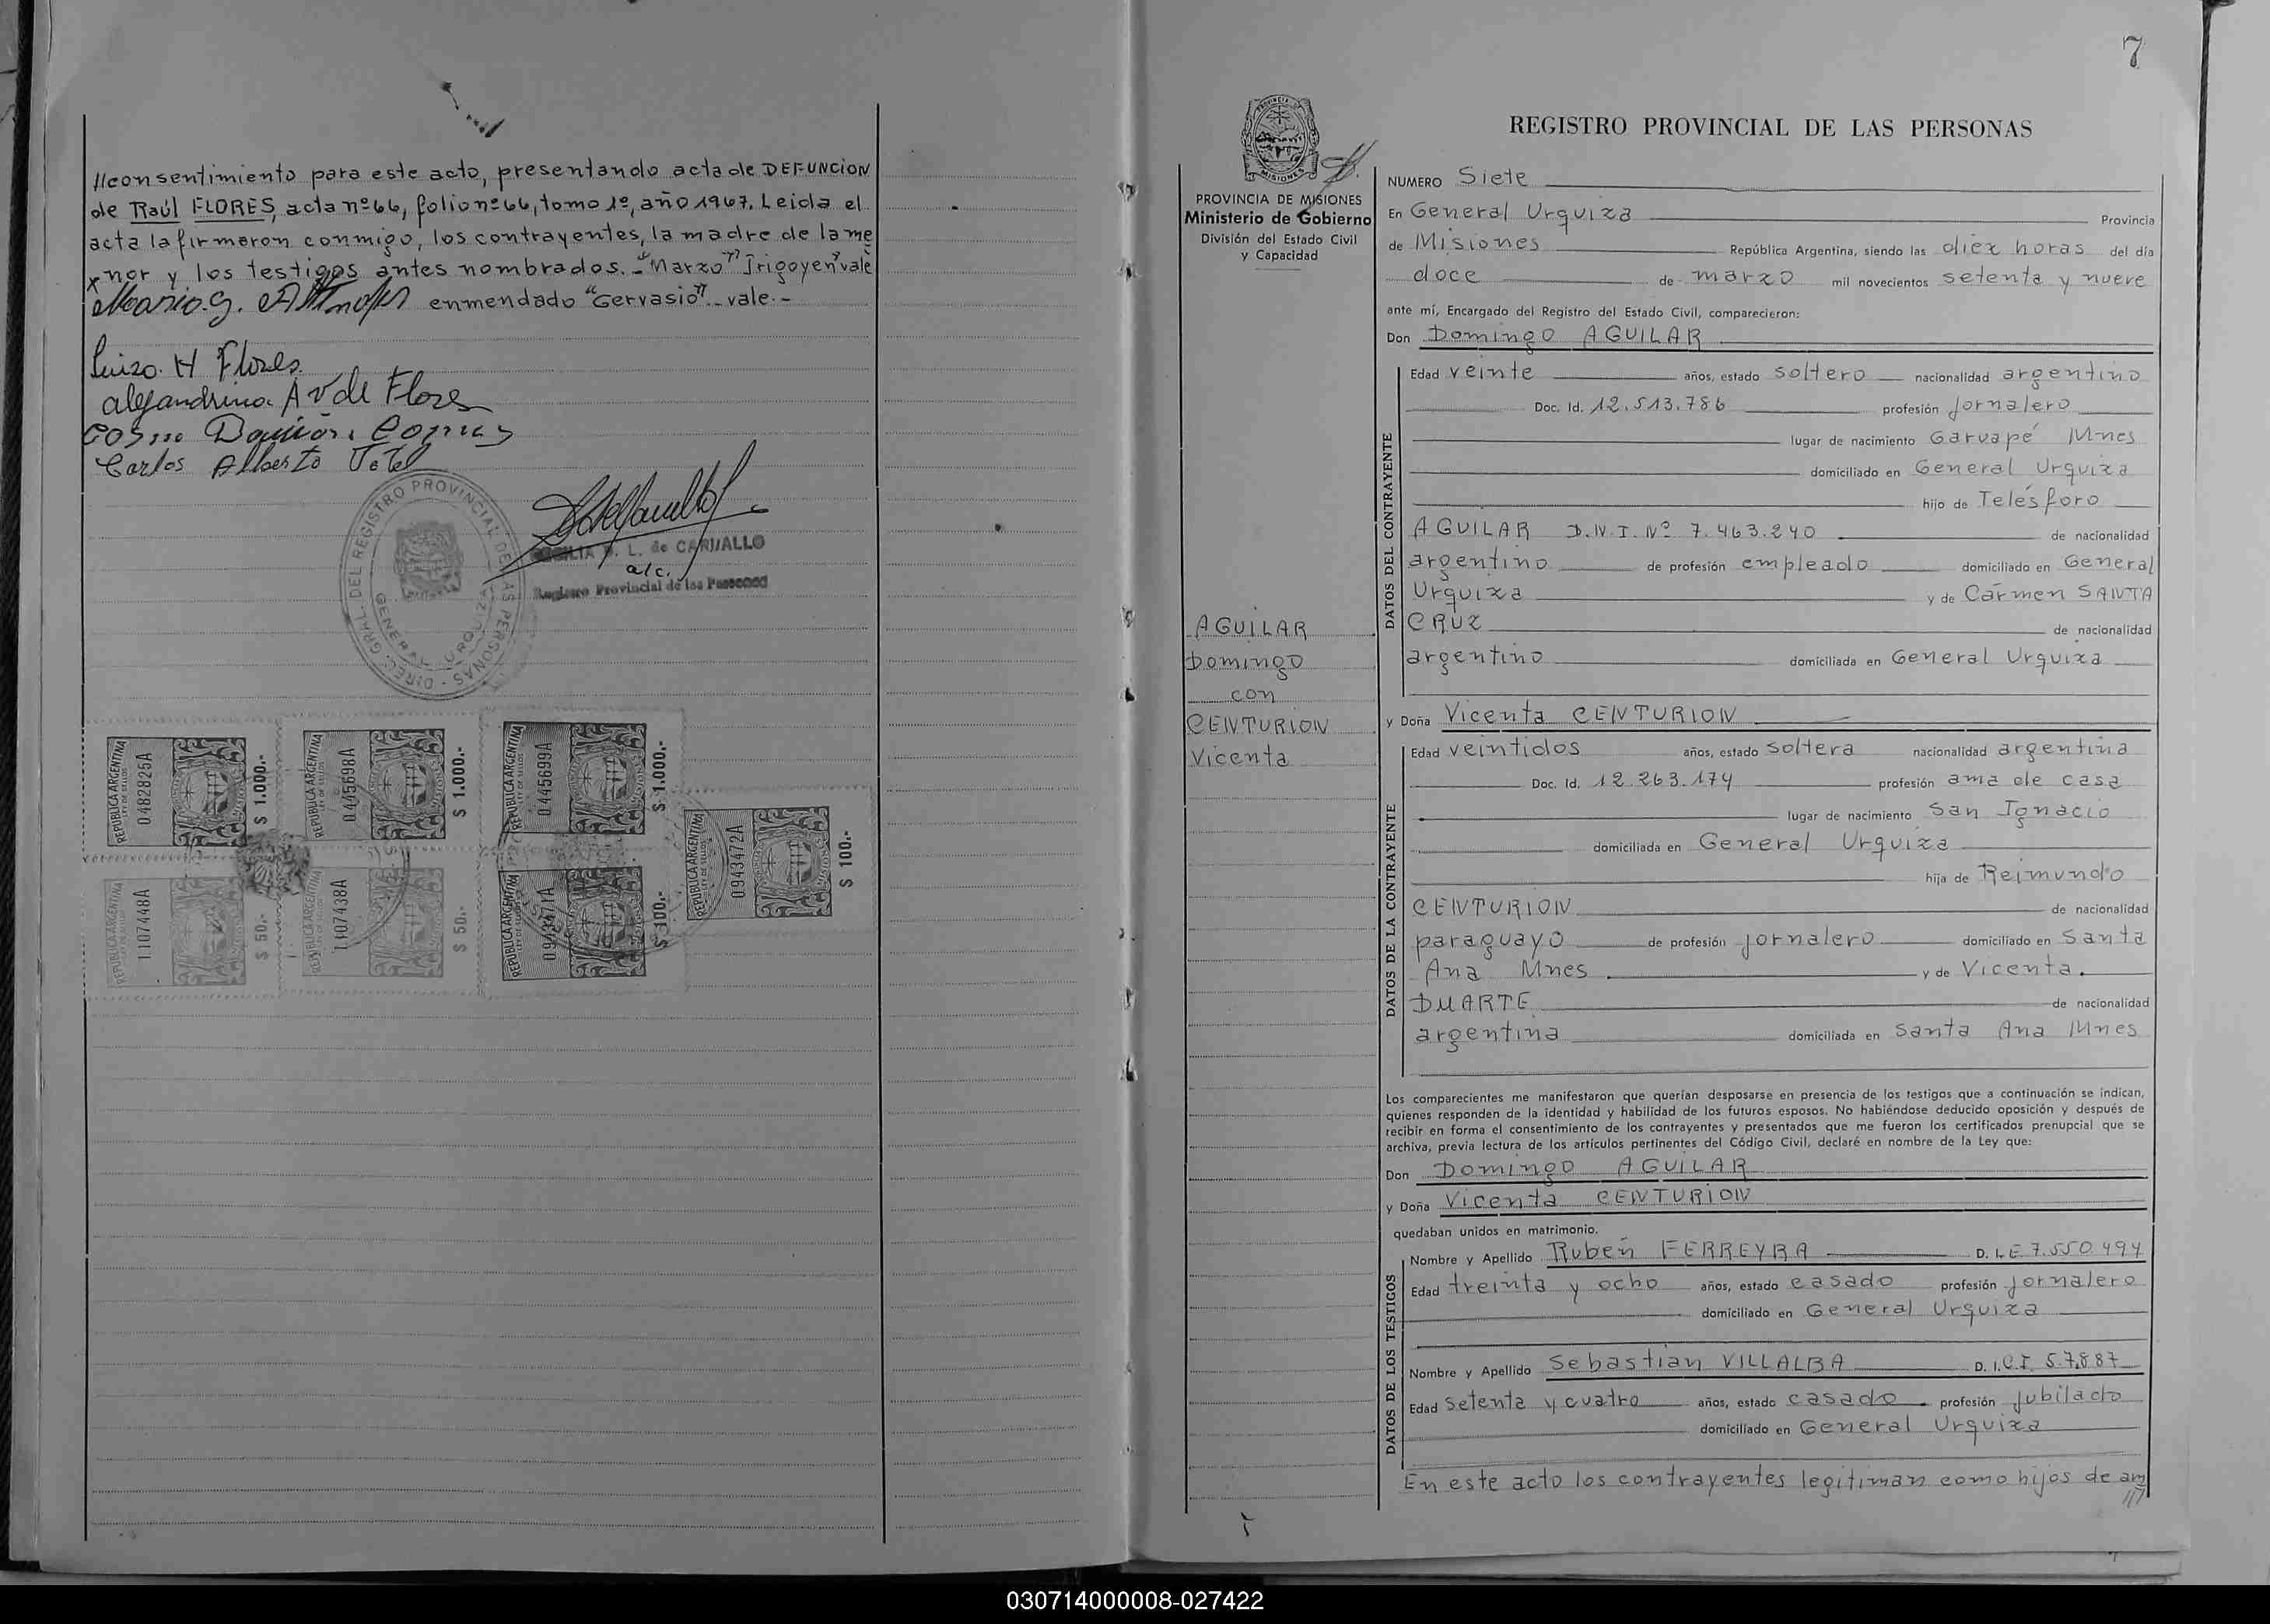 //consentimiento para este acto, presentando acta de DEFUNCION
de Raúl FLORES, acta nº66, folio nº66, tomo 1º, año 1967. Leida el
acta la firmaron conmigo, los contrayentes, la madre de la me
nor y los testigos antes nombrados.- "Marzo" "Irigoyen" vale
enmendado "Gervasio".- vale.-
Luisa H Flores
alejandrina A v de Flores
Carlos Alberto
DIREC. GRAL. DEL REGISTRO PROVINCIAL DE LAS PERSONAS
GENERAL URQUIZA
L. de CARVALLO
a/c.
Registro Provincial de las Personas
REPUBLICA ARGENTINA
LEY DE SELLOS
0482825A
$ 1.000.-
REPUBLICA ARGENTINA
LEY DE SELLOS
0445698A
$ 1.000.-
REPUBLICA ARGENTINA
LEY DE SELLOS
0445699A
$ 1.000.-
REPUBLICA ARGENTINA
LEY DE SELLOS
1107448A
$ 50.-
REPUBLICA ARGENTINA
1107438A
$ 50.-
REPUBLICA ARGENTINA
LEY DE SELLOS
0943471A
$ 100.-
REPUBLICA ARGENTINA
LEY DE SELLOS
0943472A
$ 100.-
7
PROVINCIA DE MISIONES
Ministerio de Gobierno
División del Estado Civil
y Capacidad
AGUILAR
Domingo
con
CENTURION
Vicenta
REGISTRO PROVINCIAL DE LAS PERSONAS
NUMERO Siete
En General Urquiza Provincia
de Misiones República Argentina, siendo las diez horas del día
doce de marzo mil novecientos setenta y nueve
ante mí, Encargado del Registro del Estado Civil, comparecieron:
Don Domingo AGUILAR
DATOS DEL CONTRAYENTE
Edad veinte años, estado soltero nacionalidad argentino
Doc. Id. 12.513.786 profesión jornalero
lugar de nacimiento Garuapé Mnes
domiciliado en General Urquiza
hijo de Telésforo
AGUILAR D.N.I. Nº 7.463.240 de nacionalidad
argentino de profesión empleado domiciliado en General
Urquiza y de Cármen SANTA
CRUZ de nacionalidad
argentino domiciliada en General Urquiza
y Doña Vicenta CENTURION
DATOS DE LA CONTRAYENTE
Edad veintidos años, estado soltera nacionalidad argentina
Doc. Id. 12.263.174 profesión ama de casa
lugar de nacimiento San Ignacio
domiciliada en General Urquiza
hija de Reimundo
CENTURION de nacionalidad
paraguayo de profesión jornalero domiciliado en Santa
Ana Mnes y de Vicenta
DUARTE de nacionalidad
argentina domiciliada en Santa Ana Mnes
Los comparecientes me manifestaron que querían desposarse en presencia de los testigos que a continuación se indican,
quienes responden de la identidad y habilidad de los futuros esposos. No habiéndose deducido oposición y después de
recibir en forma el consentimiento de los contrayentes y presentados que me fueron los certificados prenupcial que se
archiva, previa lectura de los artículos pertinentes del Código Civil, declaré en nombre de la Ley que:
Don Domingo AGUILAR
y Doña Vicenta CENTURION
quedaban unidos en matrimonio.
DATOS DE LOS TESTIGOS
Nombre y Apellido Rubén FERREYRA D. I. E 7.550.494
Edad treinta y ocho años, estado casado profesión jornalero
domiciliado en General Urquiza
Nombre y Apellido Sebastian VILLALBA D. I. C.I. 57.887
Edad setenta y cuatro años, estado casado profesión jubilado
domiciliado en General Urquiza
En este acto los contrayentes legitiman como hijos de am
///
030714000008-027422